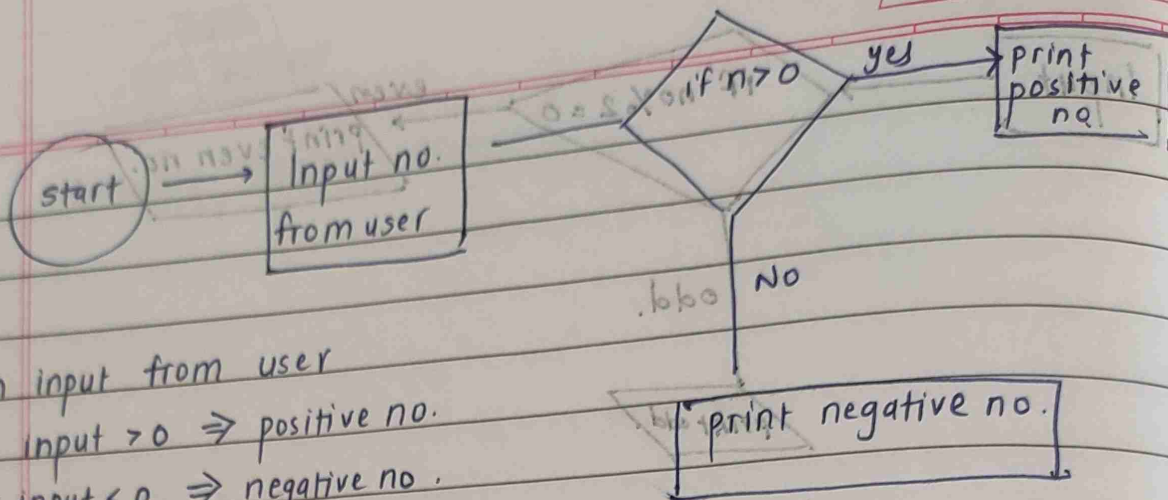 start
Input no.
from user
if n>0
yes
print
positive
no.
NO
print negative no.
input from user
input > 0 ⇒ positive no.
input < 0 ⇒ negative no.